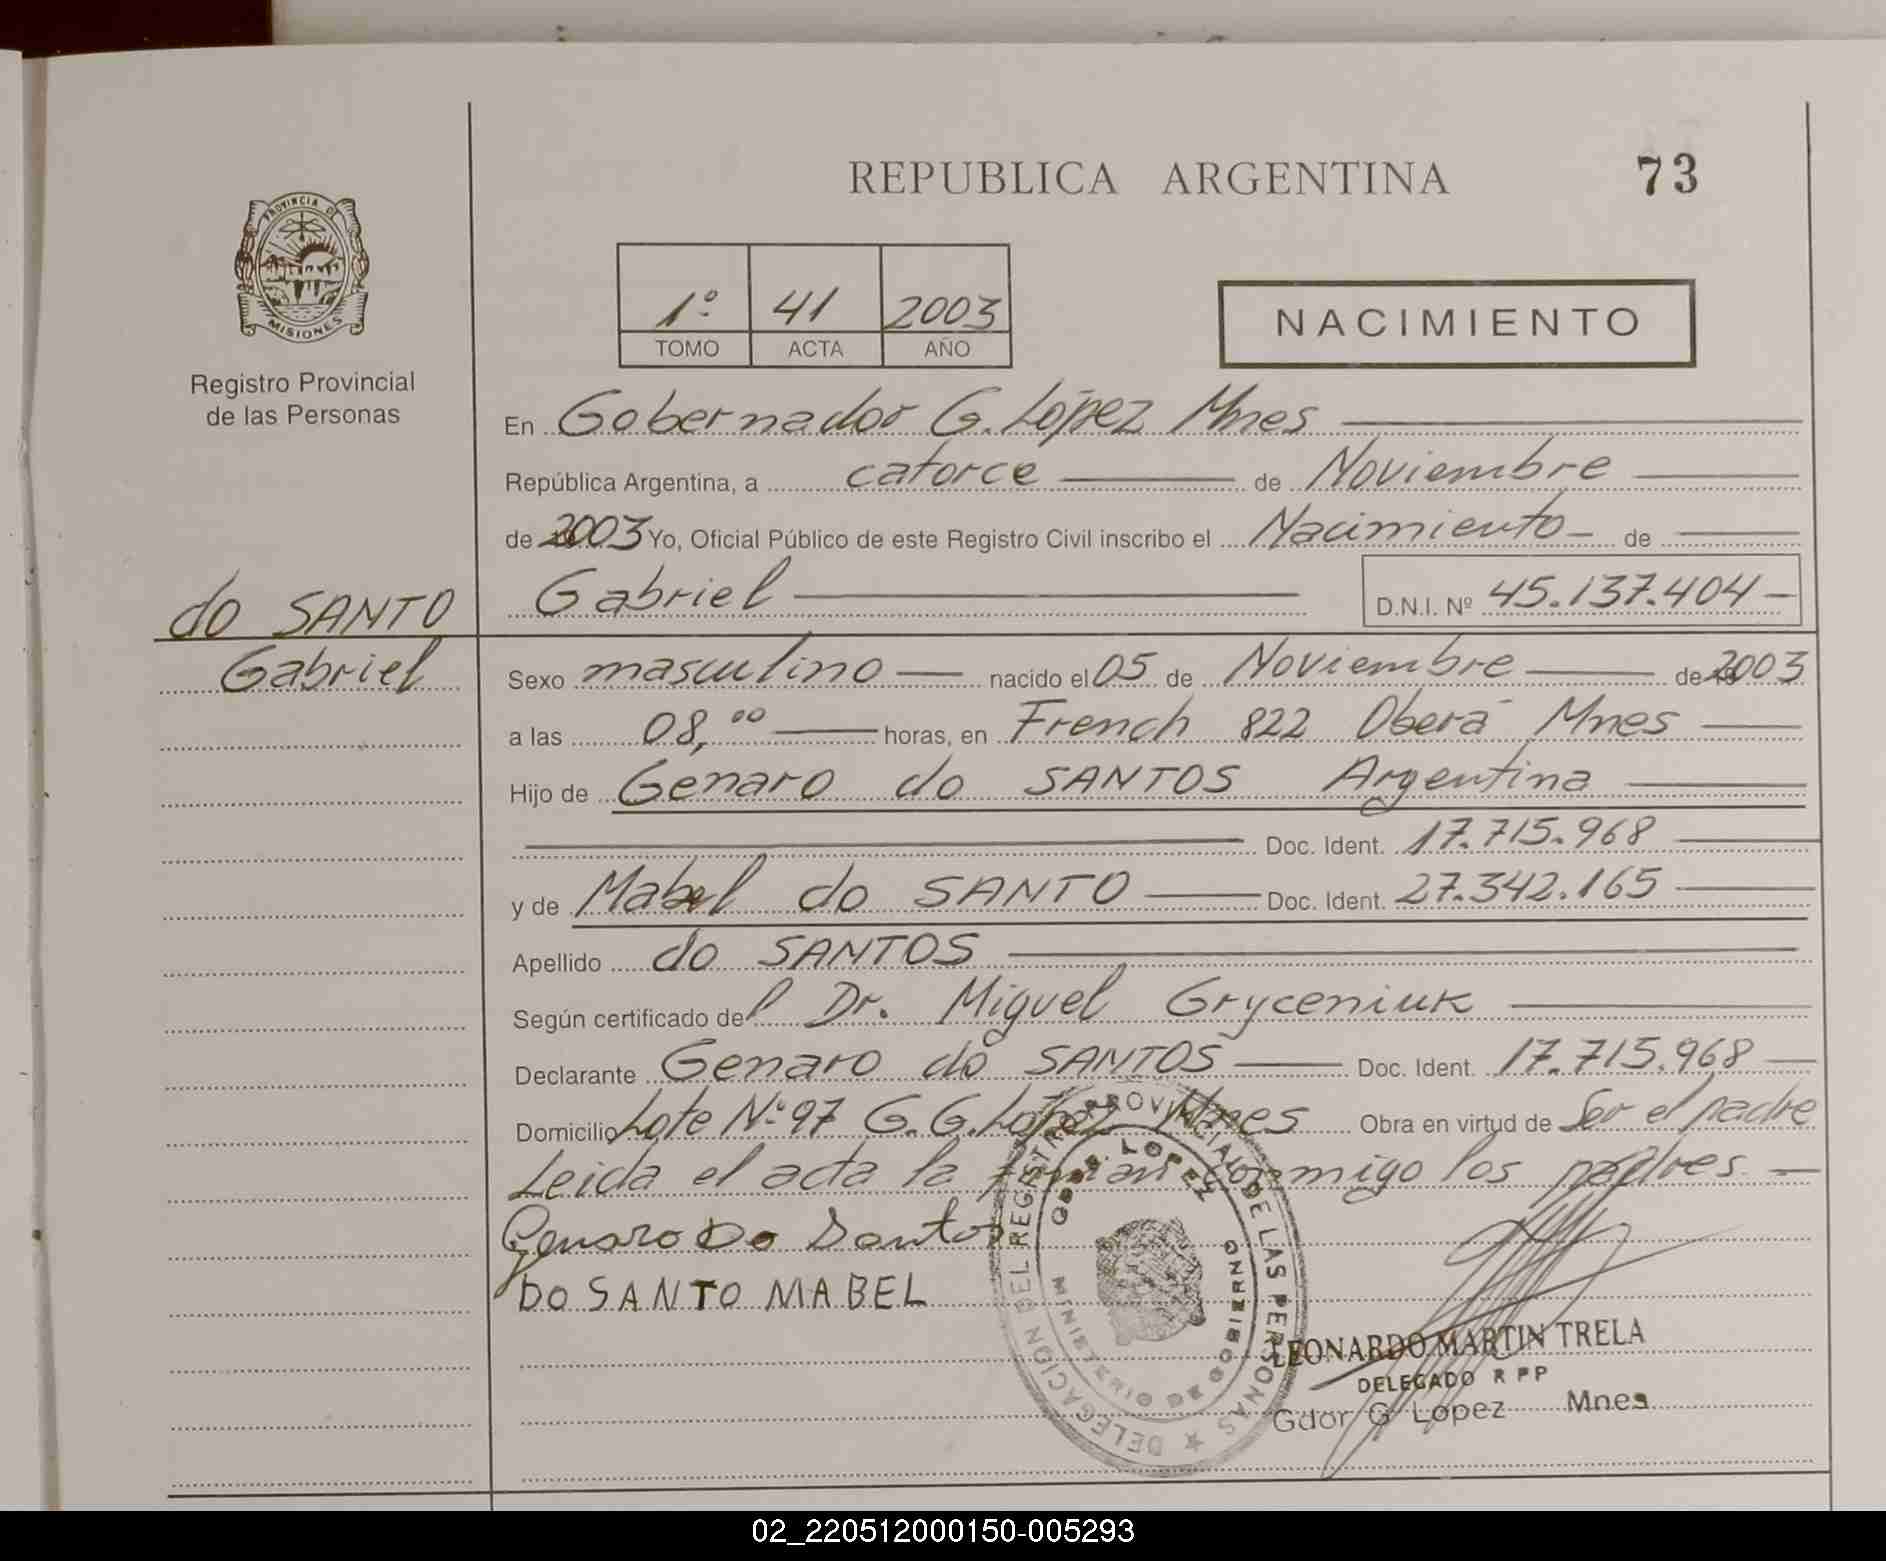 REPUBLICA ARGENTINA
73
PROVINCIA DE
MISIONES
Registro Provincial
de las Personas
1º 41 2003
TOMO ACTA AÑO
NACIMIENTO
En Gobernador G. López Mnes
República Argentina, a catorce de Noviembre
de 2003 Yo, Oficial Público de este Registro Civil inscribo el Nacimiento de
Gabriel D.N.I. Nº 45.137.404
do SANTO
Gabriel
Sexo masculino nacido el 05 de Noviembre de 2003
a las 08,00 horas, en French 822 Oberá Mnes
Hijo de Genaro do SANTOS Argentina
Doc. Ident. 17.715.968
y de Mabel do SANTO Doc. Ident. 27.342.165
Apellido do SANTOS
Según certificado del Dr. Miguel Gryceniuk
Declarante Genaro do SANTOS Doc. Ident. 17.715.968
Domicilio Lote Nº 97 G. G. López Mnes Obra en virtud de Ser el padre
Leida el acta la firman conmigo los padres
Genaro Do Santos
DO SANTO MABEL
DELEGACION DEL REGISTRO PROVINCIAL DE LAS PERSONAS
GDOR. LOPEZ
MINISTERIO DE GOBIERNO
LEONARDO MARTIN TRELA
DELEGADO R P P
Gdor G Lopez Mnes
02_220512000150-005293